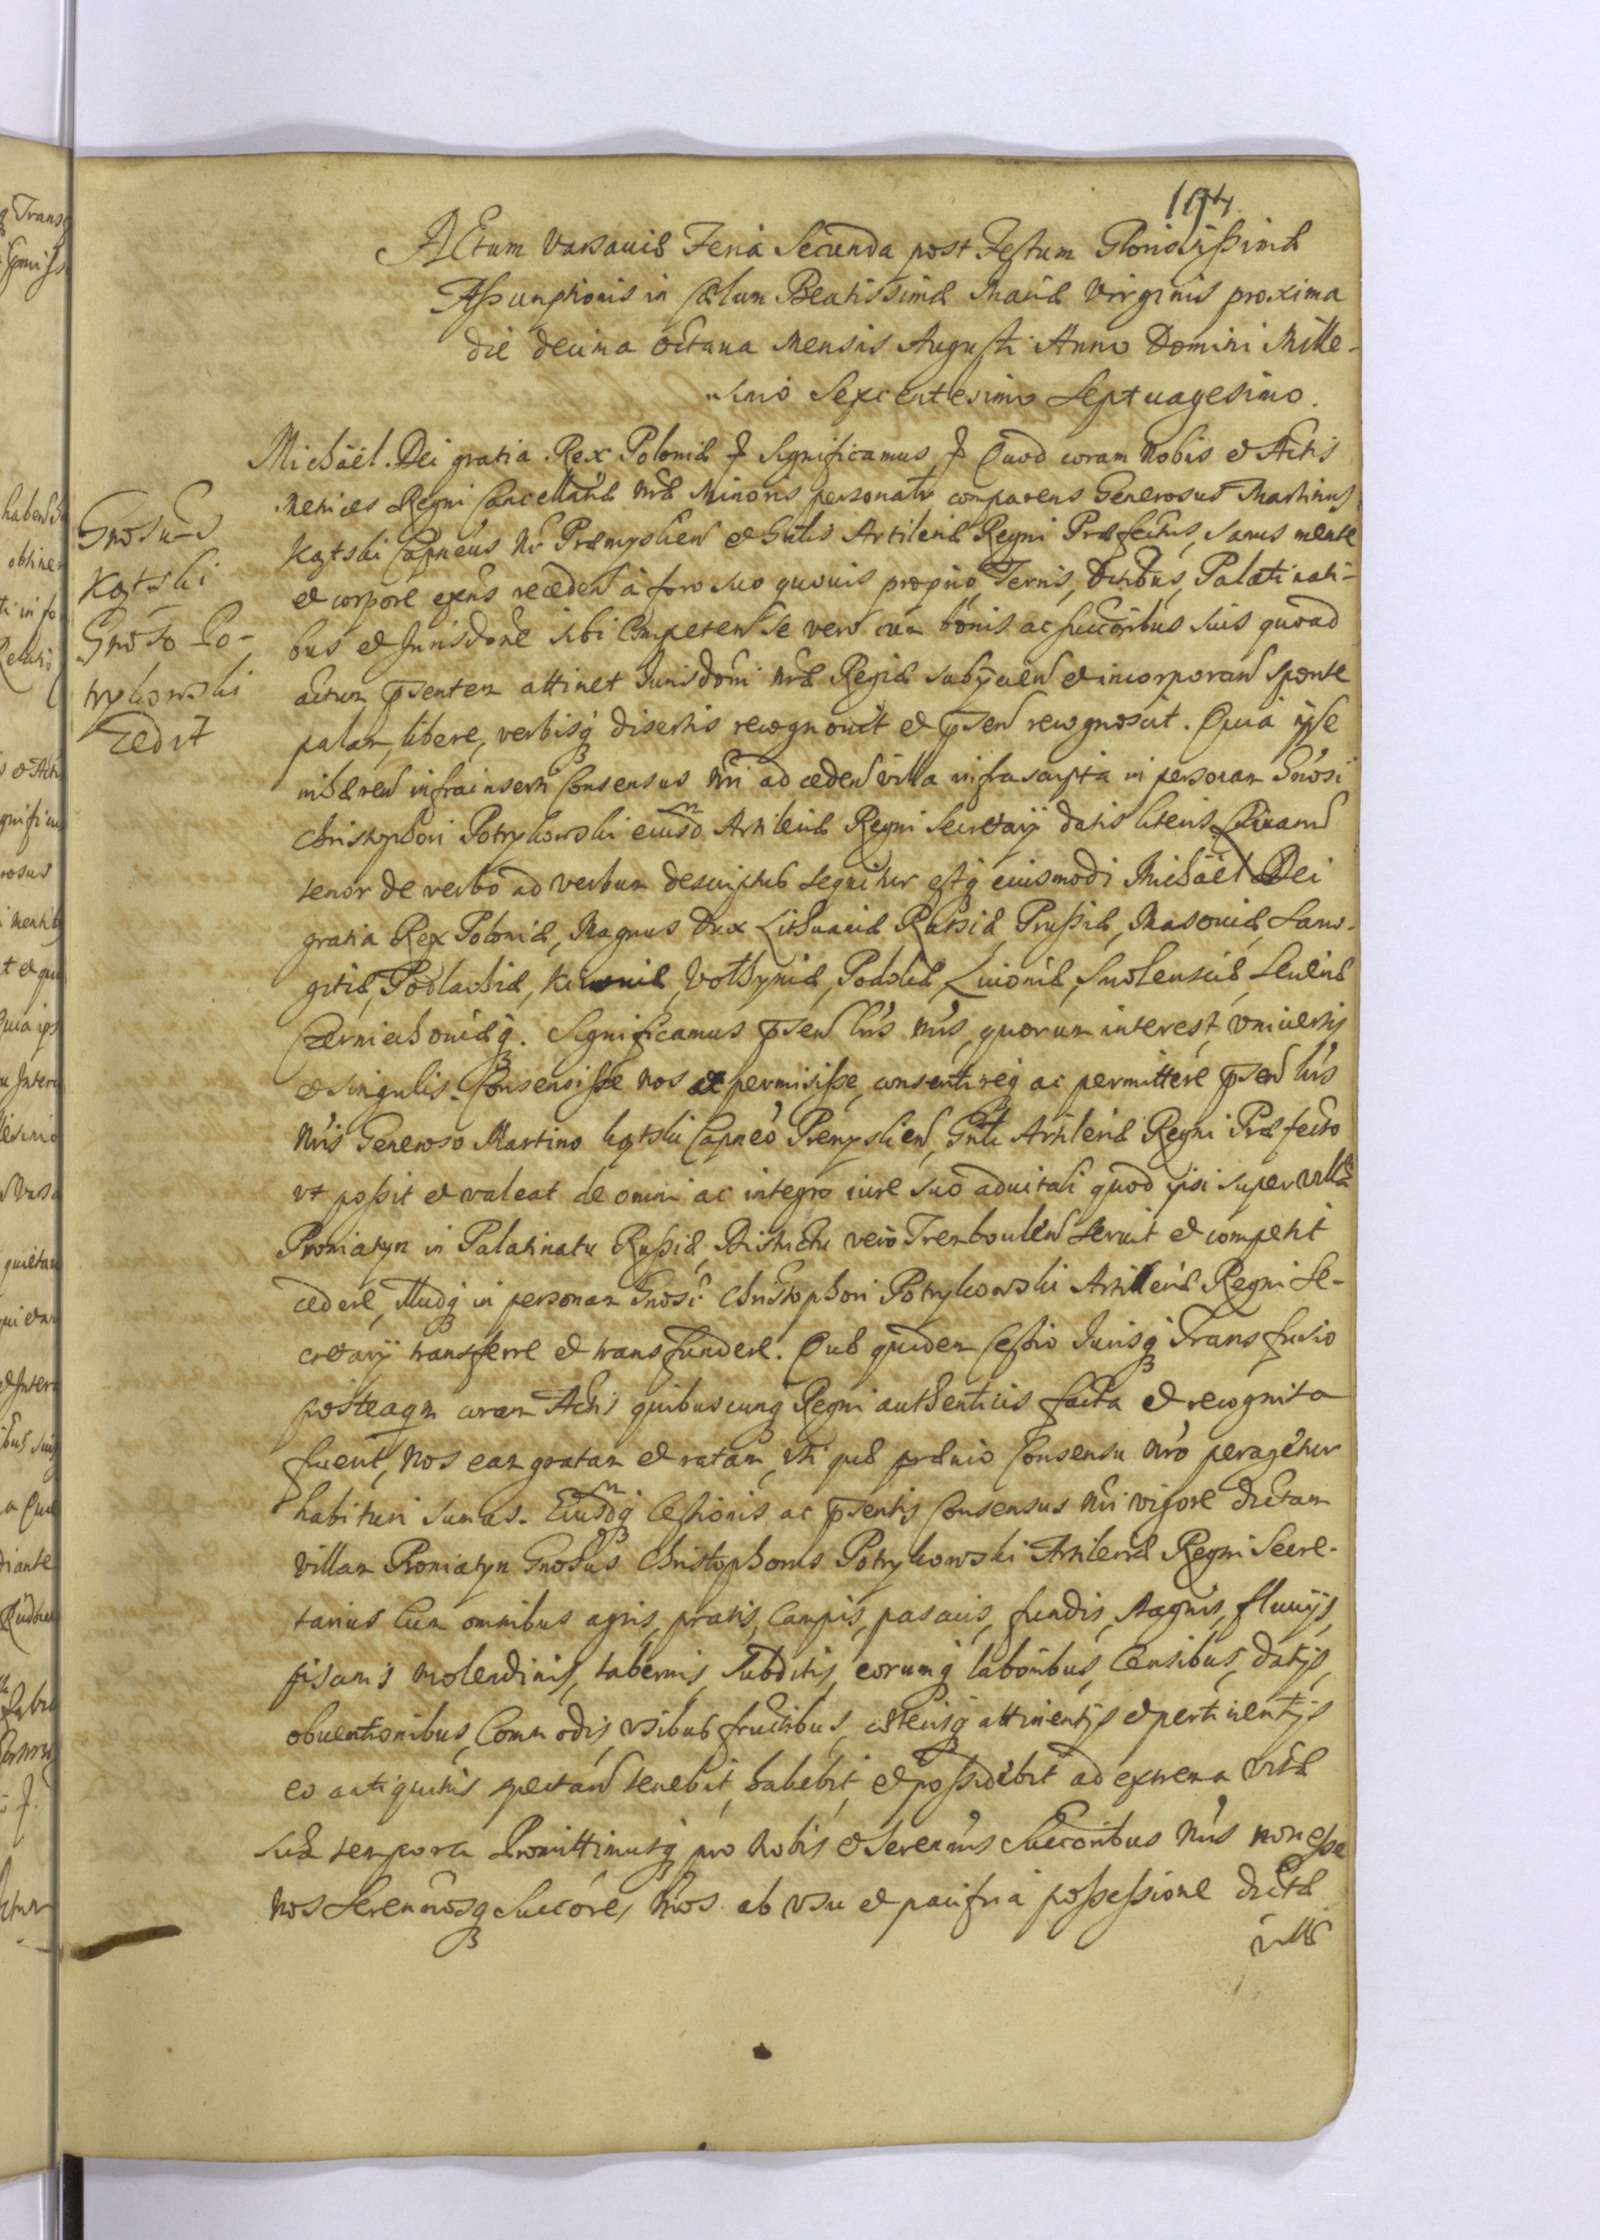 Actum Varsaviæ Feria Secunda post Festum Gloriosissimæ
Assumptionis in Cælum Beatissimæ Mariæ Virginis proxima
die decima octaua Mensis Augusti Anno Domini Mille-
simo Sexcentesimo Septuagesimo.
Michaël Dei gratia Rex Poloniæ Significamus Quod coram Nobis et Actis
Metrices Regni Cancellariæ Nræ Minoris personalr comparens Generosus Martinus
Kątski Capneus Nr Præmyslien et Gnlis Artileriæ Regni Præfectus, sanus mente
et corpore exns recedens à foro suo quouis proprio, Terris, Dctibus, Palatinati-
bus et Jurisdone sibi Competen se vero cum bonis ac succoribus suis quoad
actum pſentem attinet Jurisdoni Nræ Regiæ subijcien et incorporan sponte
palam, libere, verbisq disertis recognouit et pſen recognoscit. Quia ipse
inhæren infrainserti Consensus Nri ad ceden villa infrascripta in personam Gnosi
Christophori Potrykowski eiusdm Artileriæ Regni Secretarij datis literis
tenor de verbo ad verbum descriptus sequitur estq eiusmodi Michaël Dei
gratia Rex Poloniæ, Magnus Dux Lithuaniæ Russiæ, Prussiæ, Masouiæ, Samo-
gitiæ, Podlachiæ, Kiiouiæ, Volhyniæ, Podoliæ, Liuoniæ, Smolensciæ, Seueriæ
Czerniechouiæq. Significamus pſen lris nris, quorum interest, vniuersis
et singulis. Consensisse nos et permisisse, consentireq ac permittere pſen lris
Nris Generoso Martino Kątski Capneo Premyslien, Gnli Artileriæ Regni Præfecto
vt possit et valeat de omni ac integro iure suo aduitali quod ipsi super villa
Proniatyn in Palatinatu Russiæ, Districtu vero Tremboulen seruit et competit
cedere, illudq in personam Gnosi Christophori Potrykowski Artilleriæ Regni Se-
cretarij transferre et transfundere. Quæ quidem Cessio Jurisq Transfusio
posteaqm coram Actis quibuscunq Regni authenticis facta et recognita
fuerit, Nos eam gratam et ratam, vti quæ præuio Consensu Nro peragetur
habituri sumus. Eiusdmq Cessionis ac pſentis Consensus Nri vigore dictam
villam Proniatyn Gnosus Christophorus Potrykowski Artileriæ Regni Secre-
tarius Cum omnibus agris, pratis, Campis, pascuis, fundis, stagnis, fluuijs,
piscinis molendinis, tabernis, Subditis, eorumq laboribus, Censibus, datijs,
obuentionibus, Commodis, vsibus fructibus, cæterisq attinentijs et pertinentijs
eo antiquitus spectan tenebit, habebit, et possidebit ad extrema vitæ
suæ tempora Promittimusq pro Nobis et Serenmis Succoribus Nris non esse
Nos Serenmosq Succores Nros ab vsu et pacifica possessione dictæ
villæ
Gnosus
Kątski
Gnoso Po-
trykowski
Cedit